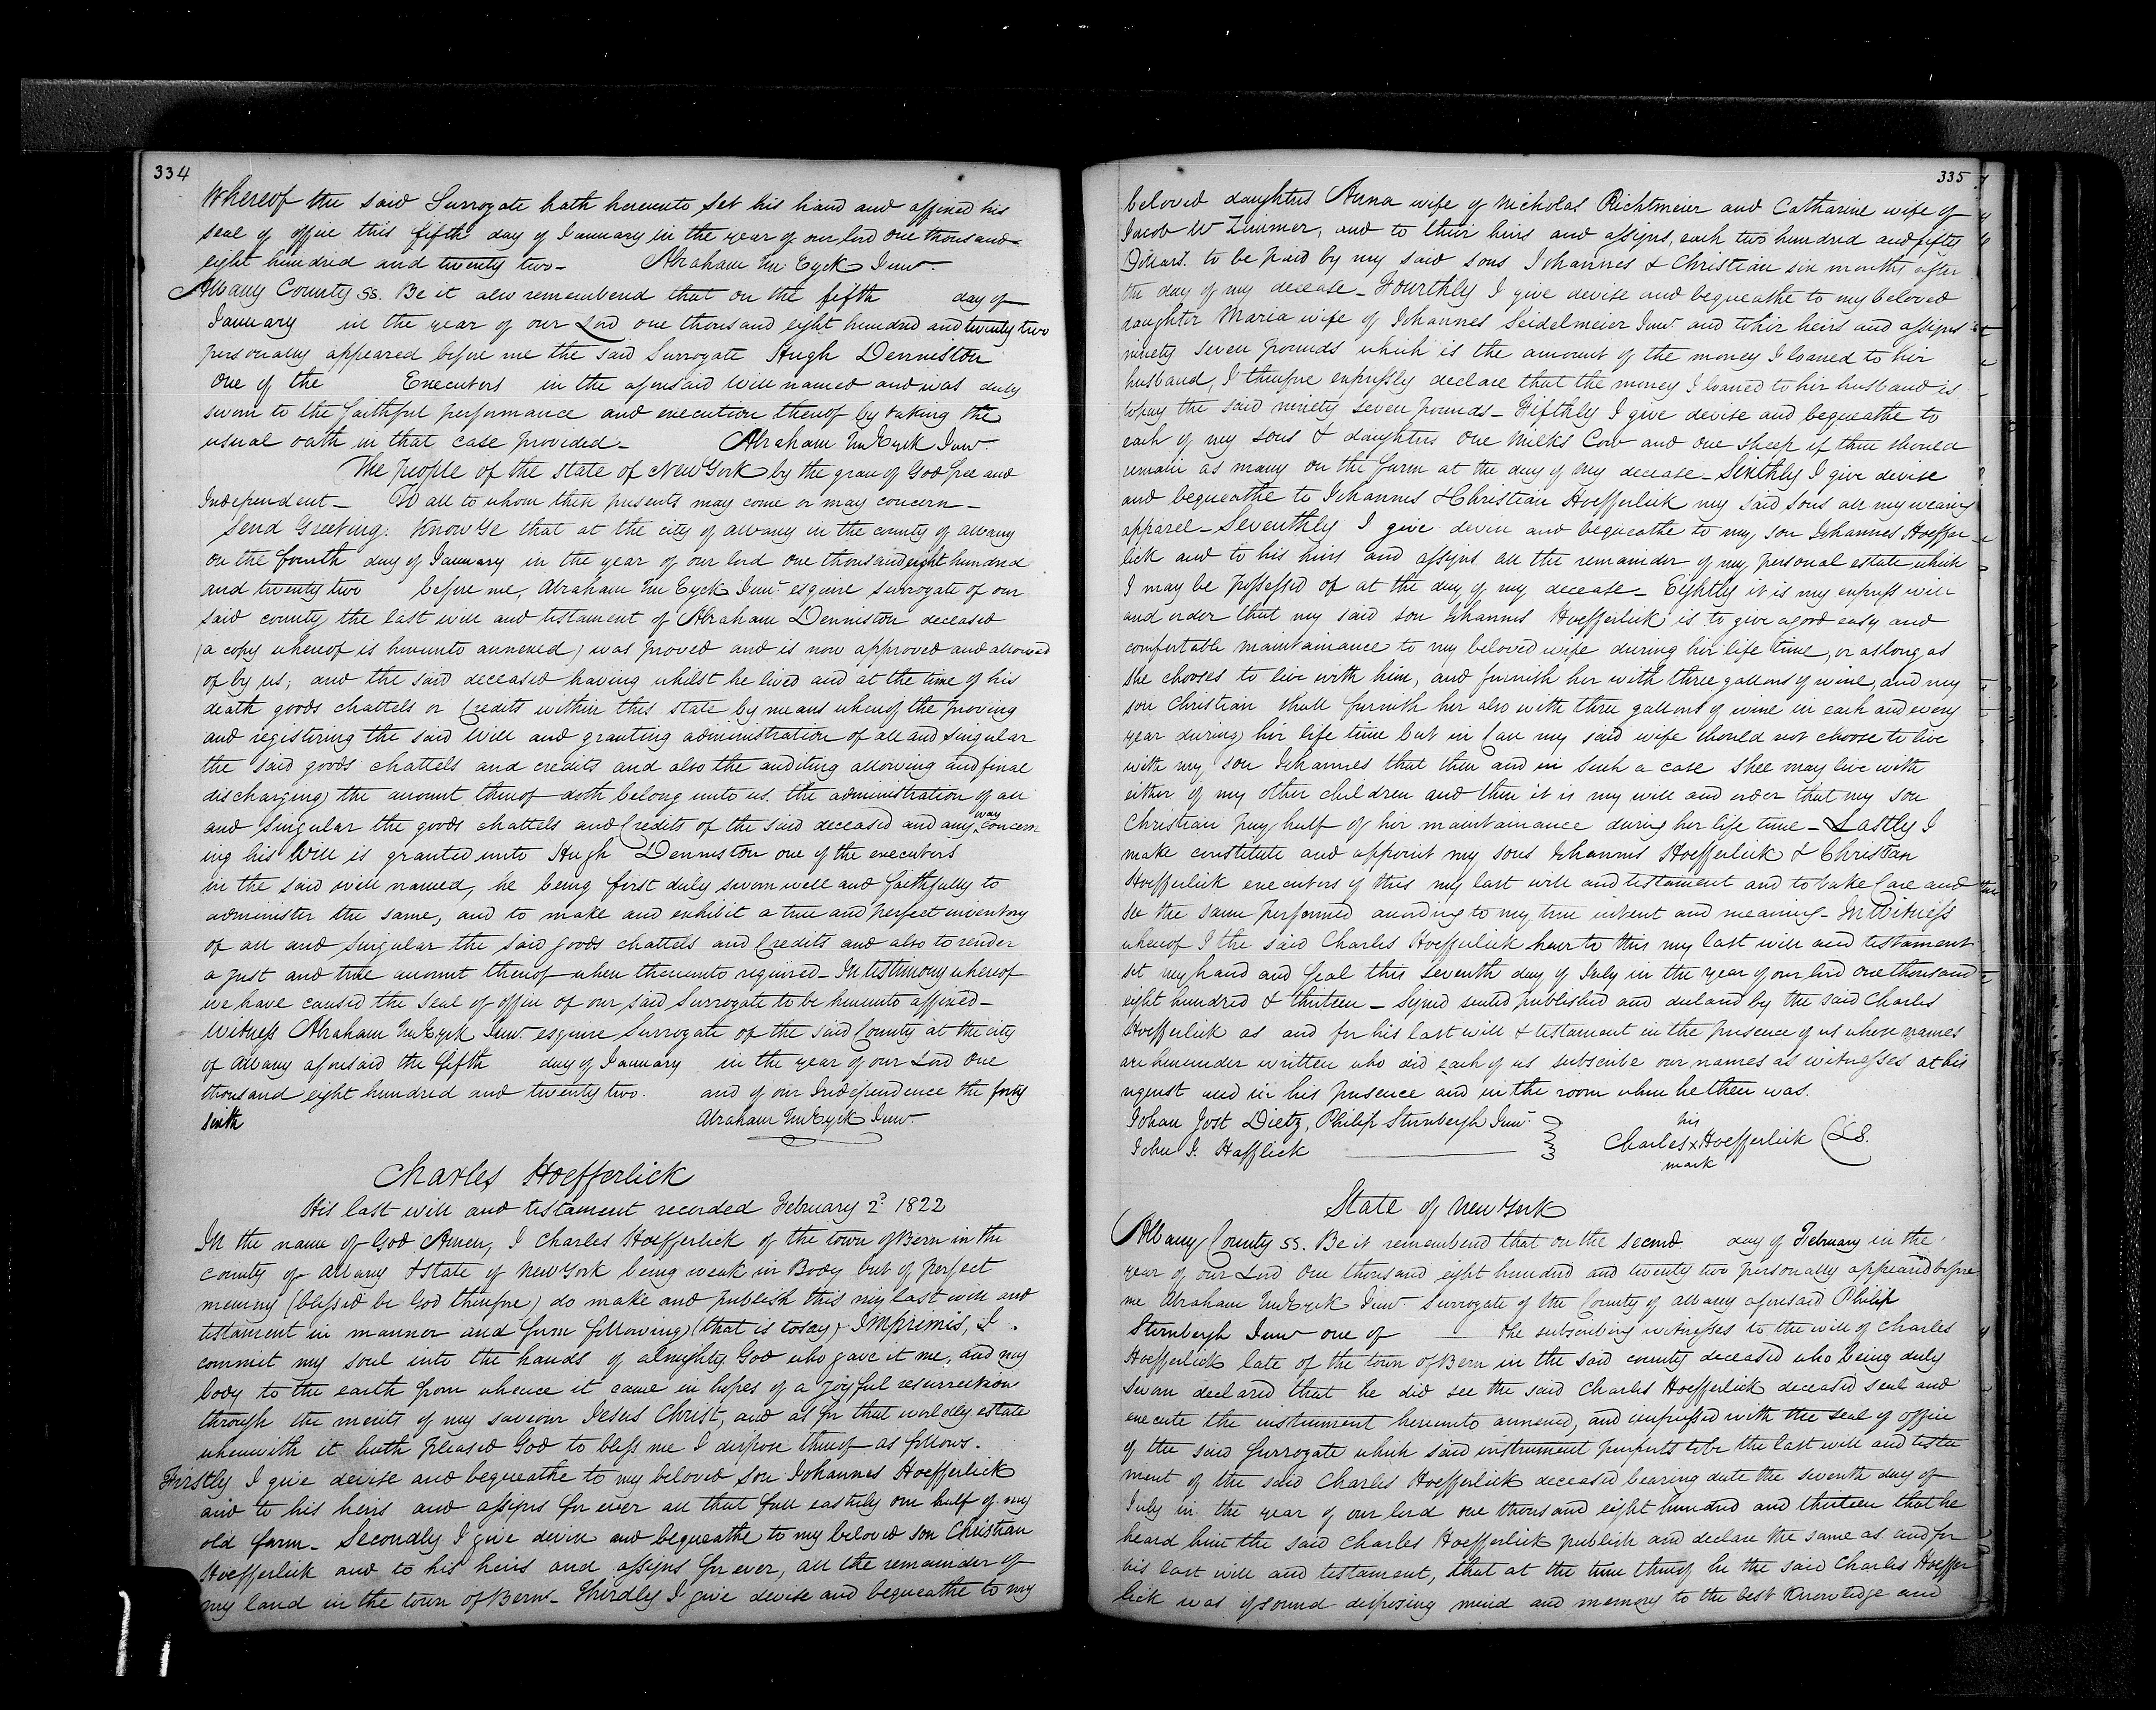 334
Whereof the said Surrogate hath hereunto set his hand and affixed his
seal of office this fifth day of January in the year of our lord one thousand
eight hundred and twenty two - Abraham Ten Eyck Junr.
Albany County ss. Be it also remembered that on the fifth day of
January in the year of our Lord one thousand eight hundred and twenty two
personally appeared before me the said Surrogate Hugh Denniston
One of the Executors in the aforesaid Will named and was duly
sworn to the faithful performance and execution thereof by taking the
usual oath in that case provided - Abraham Ten Eyck Junr.
The People of the state of New York by the grace of God free and
Independent - To all to whom these presents may come or may concern -
Send Greeting: Know Ye that at the city of albany in the county of albany
on the fourth day of January in the year of our lord one thousand eight hundred
and twenty two before me, Abraham Ten Eyck Junr. esquire surrogate of our
said county the last will and testament of Abraham Denniston deceased
(a copy whereof is hereunto annexed) was proved and is now approved and allowed
of by us; and the said deceased having whilst he lived and at the time of his
death goods chattels or Credits within this state by means whereof the proving
and registering the said Will and granting administration of all and singular
the said goods chattels and credits and also the auditing allowing and final
discharging the account thereof doth belong unto us. the administration of all
and singular the goods chattels and Credits of the said deceased and any way concern
ing his Will is granted unto Hugh Denniston one of the executors
in the said will named, he being first duly sworn well and faithfully to
administer the same, and to make and exhibit a true and perfect inventory
of all and singular the said goods chattels and Credits and also to render
a just and true account thereof when thereunto required - In testimony whereof
we have caused the Seal of office of our said Surrogate to be hereunto affixed -
Witness Abraham Ten Eyck Junr. esquire Surrogate of the said County at the city
of Albany aforesaid the fifth day of January in the year of our Lord One
thousand eight hundred and twenty two. and of our Independence the forty
sixth Abraham Ten Eyck Junr.
Charles Hoefferlick
His last will and testament recorded February 2d 1822
In the name of God Amen, I Charles Hoefferlick of the town of Bern in the
county of Albany & State of New York being weak in Body but of perfect
memory (blessed be God therefore) do make and publish this my last will and
testament in manner and form following (that is to say) Imprimis, I
commit my soul into the hands of almighty God who gave it me, and my
body to the earth from whence it came in hopes of a joyful resurrection
through the merits of my saviour Jesus Christ, and as for that worldly estate
wherewith it hath pleased God to bless me I dispose thereof as follows.
Firstly I give devise and bequeathe to my beloved son Johannes Hoefferlick
and to his heirs and assigns for ever all that full easterly one half of my
old farm - Secondly I give devise and bequeathe to my beloved son Christian
Hoefferlick and to his heirs and assigns for ever, all the remainder of
my land in the town of Bern - Thirdly I give devise and bequeathe to my
335
beloved daughters Anna wife of Nicholas Richtmeier and Catharine wife of
Jacob W Zimmer, and to their heirs and assigns, each two hundred and fifty
Dollars. to be paid by my said sons Johannes & Christian six months after
the day of my decease - Fourthly I give devise and bequeathe to my beloved
daughter Maria wife of Johannes Seidelmeier Junr. and to hir heirs and assigns
ninety seven pounds which is the amount of the money I loaned to her
husband, I therefore expressly declare that the money I loaned to hir husband is
to pay the said ninety seven pounds - Fifthly I give devise and bequeathe to
each of my sons & daughters one milks Cow and one sheep if there should
remain as many on the farm at the day of my decease - Sixthly I give devise
and bequeathe to Johannes & Christian Hoefferlick my said sons all my wearing
apparel - Seventhly I give devise and bequeathe to my son Johannes Hoeffer
lick and to his heirs and assigns all the remainder of my personal estate which
I may be possessed of at the day of my decease - Eightly it is my express will
and order that my said son Johannes Hoefferlick is to give a good easy and
comfortable maintainance to my beloved wife during her life time, or as long as
she chooses to live with him, and furnish her with three gallons of wine, and my
son Christian shall furnish her also with three gallons of wine in each and every
year during her life time but in Case my said wife should not choose to live
with my son Johannes that then and in such a case shee may live with
either of my other children and then it is my will and order that my son
Christian pay half of her maintainance during her life time - Lastly I
make constitute and appoint my sons Johannes Hoefferlick & Christian
Hoefferlick executors of this my last will and testament and to take Care and
see the same performed according to my true intent and meaning - In Witness
whereof I the said Charles Hoefferlick have to this my last will and testament
set my hand and Seal this seventh day of July in the year of our lord one thousand
eight hundred & thirteen - Signed sealed published and declared by the said Charles
Hoefferlick as and for his last will & testament in the presence of us whose names
are hereunder written who did each of us subscribe our names as witnesses at his
request and in his presence and in the room where he then was.
Johan Jost Dietz, Philip Sternbergh Junr. his
John J. Hafflick Charles x Hoefferlick (LS.
mark
State of New York
Albany County ss. Be it remembered that on the second day of February in the
year of our Lord One thousand eight hundred and twenty two personally appeared before
me Abraham Ten Eyck Junr. Surrogate of the County of albany aforesaid Philip
Sternbergh Junr one of the subscribing witnesses to the will of Charles
Hoefferlick late of the town of Bern in the said county deceased who being duly
sworn declared that he did see the said Charles Hoefferlick deceased seal and
execute the instrument hereunto annexed, and impressed with the seal of office
of the said Surrogate which said instrument purports to be the last will and testa
ment of the said Charles Hoefferlick deceased bearing date the seventh day of
July in the year of our lord one thousand eight hundred and thirteen that he
heard him the said Charles Hoefferlick publish and declare the same as and for
his last will and testament, that at the time thereof he the said Charles Hoeffer
lick was of sound disposing mind and memory to the best Knowledge and